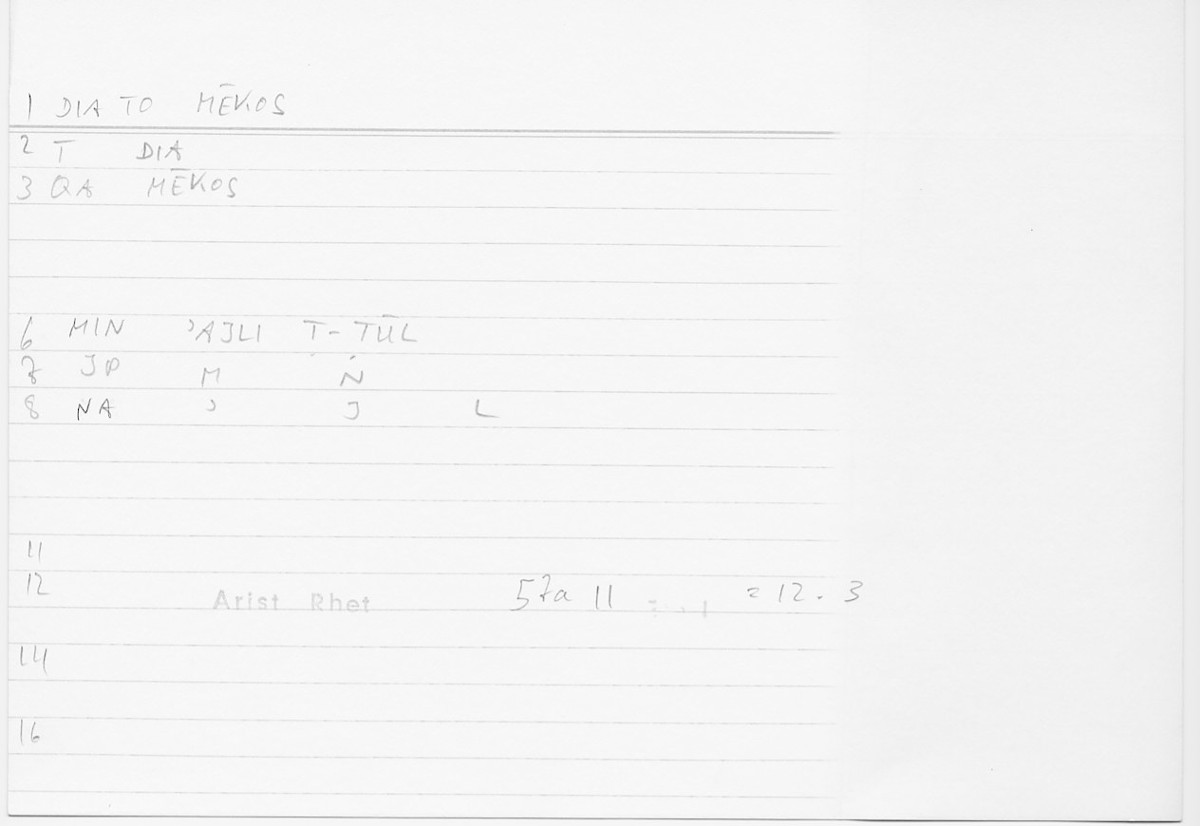 1 DIA TO MĒKOS
2 T DIA
3 QA MĒKOS
6 MIN ʾAJLI Ṭ-ṬŪL
7 JP M N
8 NA ʾ J L
11
12 Arist Rhet 57a 11 = 12.3
14
16